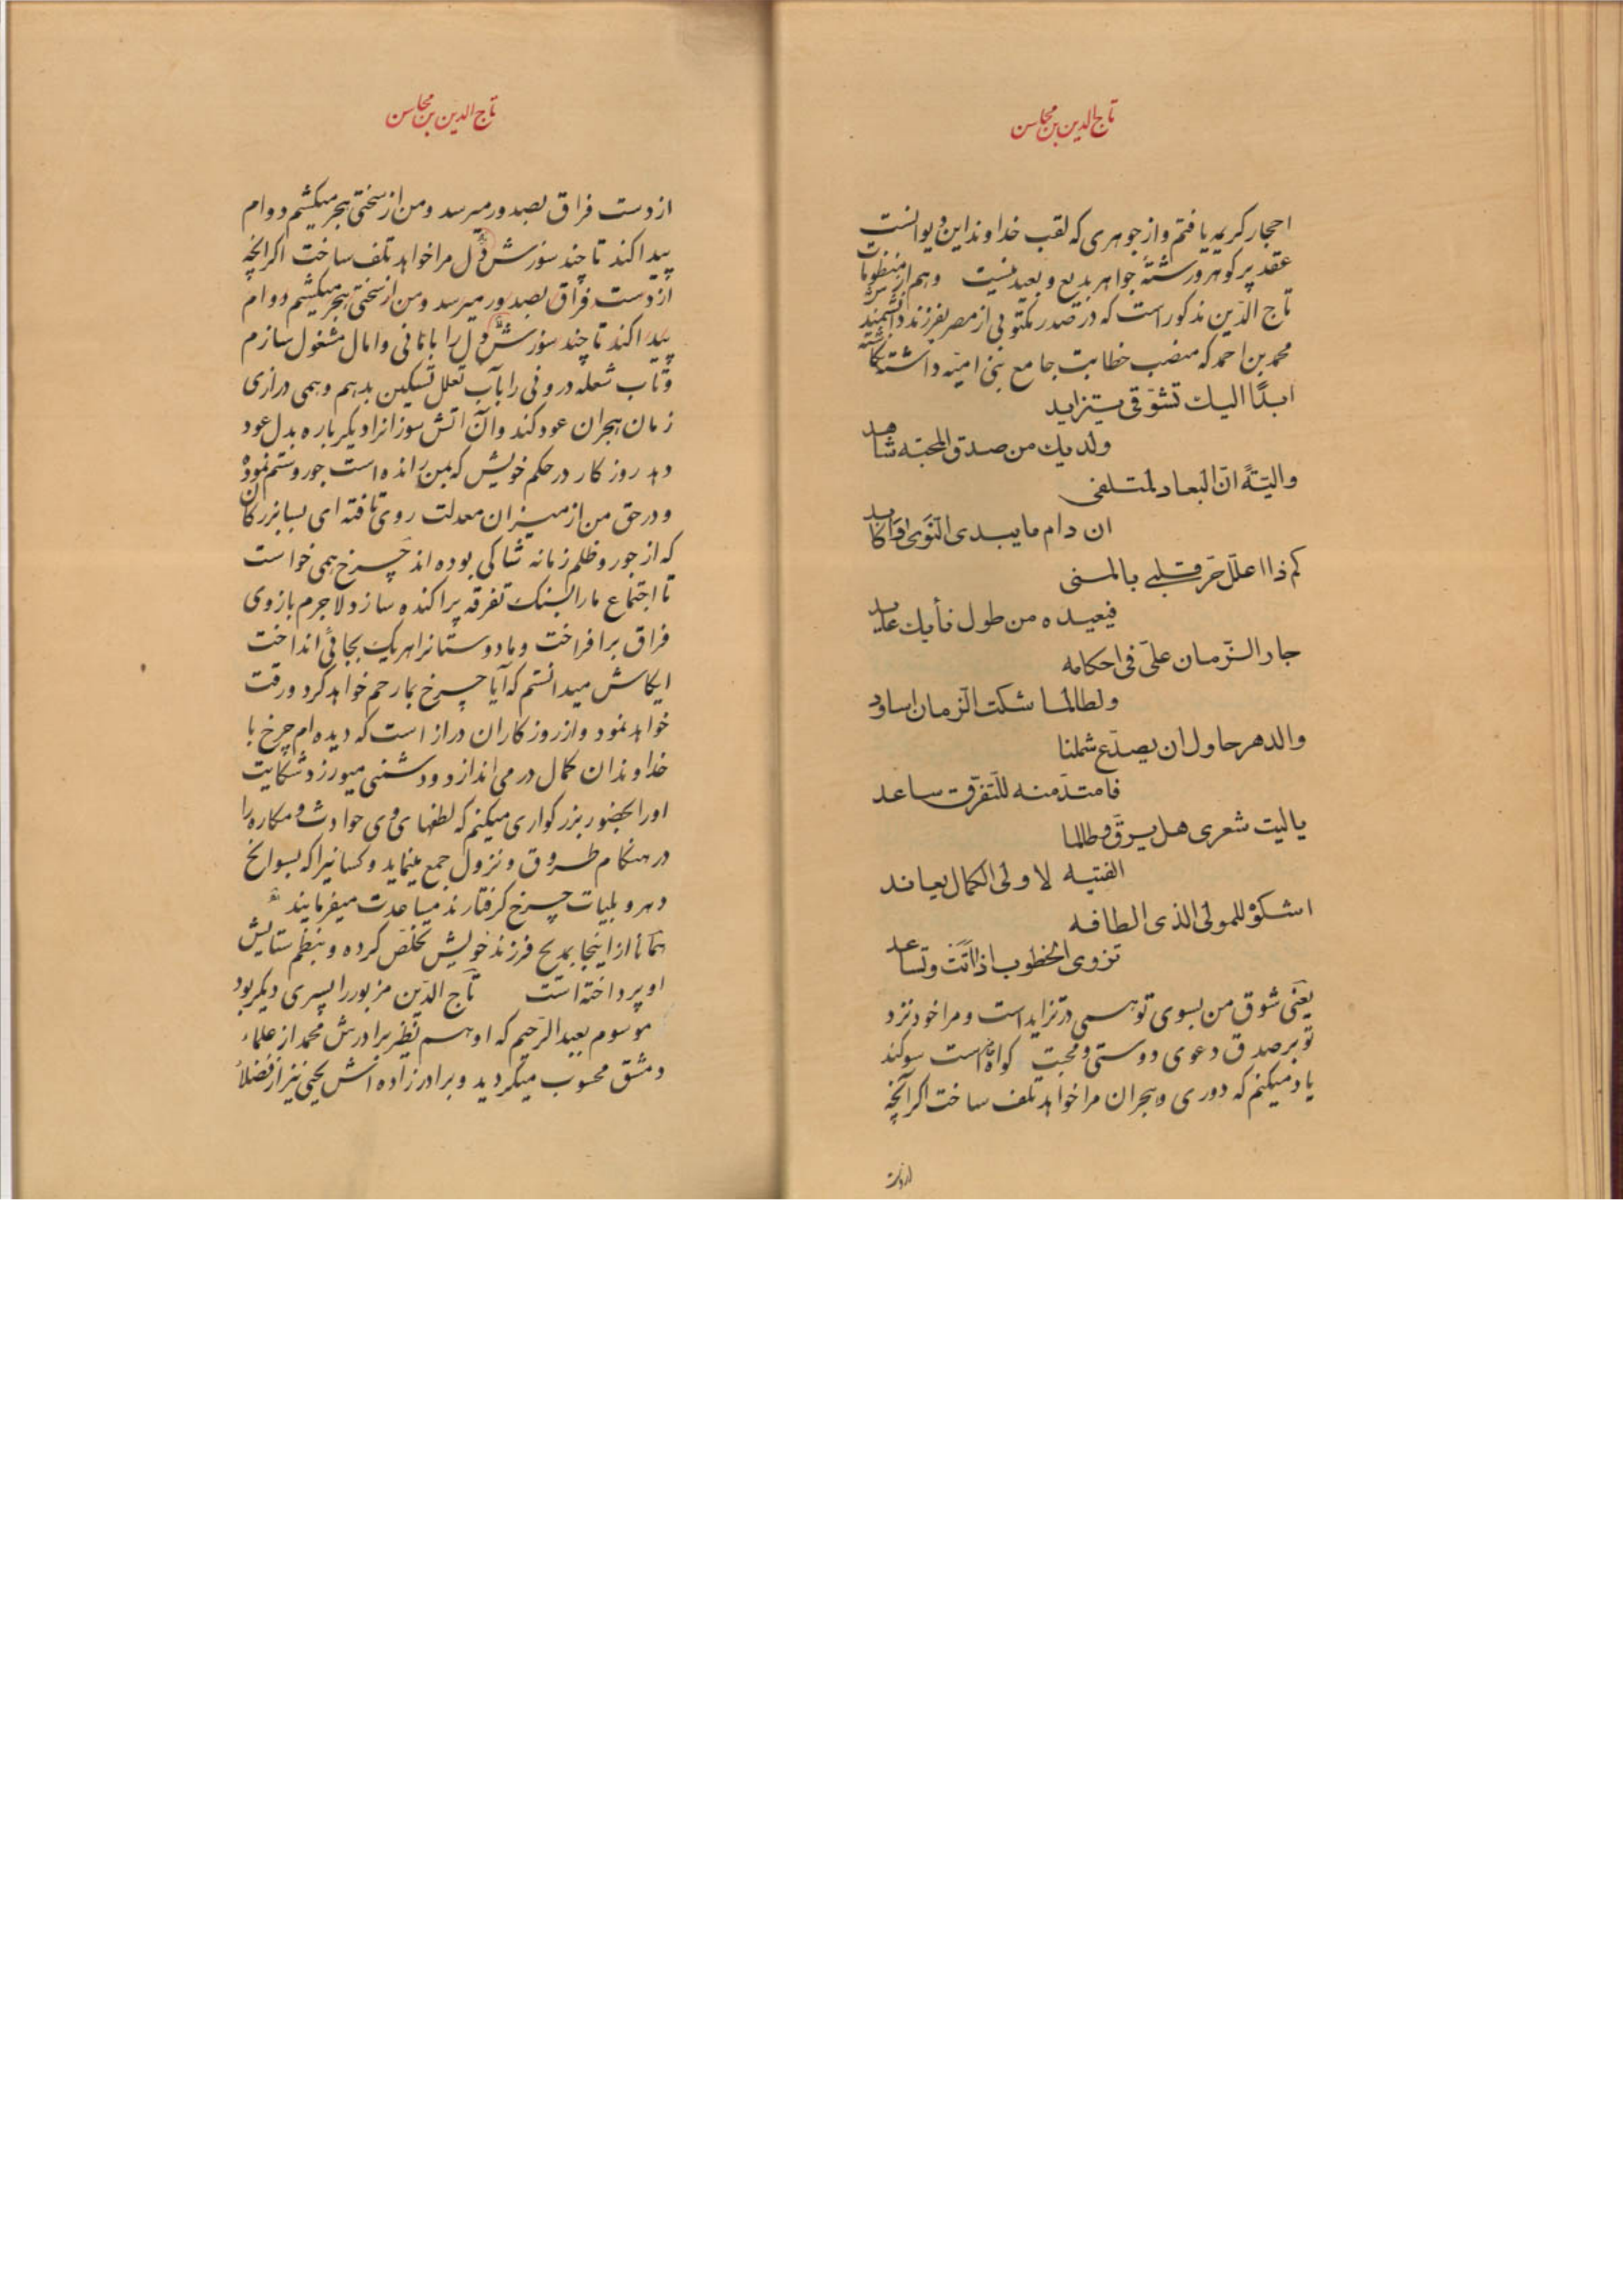 تاج الدین بن محاسن
احجار کریمه یافتم و از جوهری که لقب خداوند این دیوانست
عقد پر کوهر و رشتهٔ جواهر بدیع و بعید نیست وهم از منظومات
تاج الدّین مذکور است که در صدر مکتوبی از مصر بفرزند دانشمندش
محمد بن احمد که منصب خطابت جامع بنی امیّه داشته نکاشته
ابدًا الیك تشوّقی یتزاید
ولدیك من صدق المحبّه شاهد
والیّتةً انّ البعاد لمتلفی
ان دام ما یبدی النّوی واکابد
کم ذا اعلّل حرّ قلبی بالمنی
فیعیده من طول نأیك عاید
جار الزّمان علیّ فی احکامه
ولطالما شکت الزمان اساود
والدهر حاول ان یصدّع شملنا
فامتدّ منه للتّفرّق ساعد
یالیت شعری هل یرقّ وطالما
الفتیه لاولی الکمال یعاند
اشکوْ للمولی الذی الطافه
تزوی الخطوب اذا اتَتَ وتساعد
یعنی شوق من بسوی تو همی در تزاید است و مرا خود نزد
تو بر صدق دعوی دوستی و محبت کواه است سوکند
یاد میکنم که دوری و هجران مرا خواهد تلف ساخت اکر آنچه
از دست
تاج الدین بن محاسن
از دست فراق بصدور میرسد و من از سختی هجر میکشم دوام
پیدا کند تا چند سوزش دل مرا خواهد تلف ساخت اکر آنچه
از دست فراق بصدور میرسد و من از سختی هجر میکشم دوام
پیدا کند تا چند سوزش دل را بامانی و امال مشغول سازم
و تاب شعله درونی را بآب تعلل تسکین بدهم و همی درازی
زمان هجران عود کند و آن آتش سوزانرا دیکر باره بدل عود
دهد روز کار در حکم خویش که بمن رانده است جور و ستم نموده
و در حق من از میزان معدلت روی تافته ای بسا بزرکان
که از جور و ظلم زمانه شاکی بوده اند چرخ همی خواست
تا اجتماع مارا بسنك تفرقه پراکنده سازد لاجرم بازوی
فراق برافراخت و ما دوستانرا هریك بجائی انداخت
ایکاش میدانستم که آیا چرخ بما رحم خواهد کرد و رقت
خواهد نمود و از روز کاران دراز است که دیده ام چرخ با
خداوندان کمال در می اندازد و دشمنی میورزد و شکایت
اورا بحضور بزرکواری میکنم که لطفهای وی حوادث و مکاره را
در هنکام طروق و نزول جمع مینماید و کسانیرا که بسوانح
دهر و بلیات چرخ کرفتارند مساعدت میفرمایند
همانا از اینجا بمدیح فرزند خویش تخلّص کرده و بنظم ستایش
او پرداخته است تاج الدّین مزبور را پسری دیکر بود
موسوم بعبد الرّحیم که او هم نظیر برادرش محمد از علماء
دمشق محسوب میکردید و برادرزاده اش یحیی نیز از فضلاء